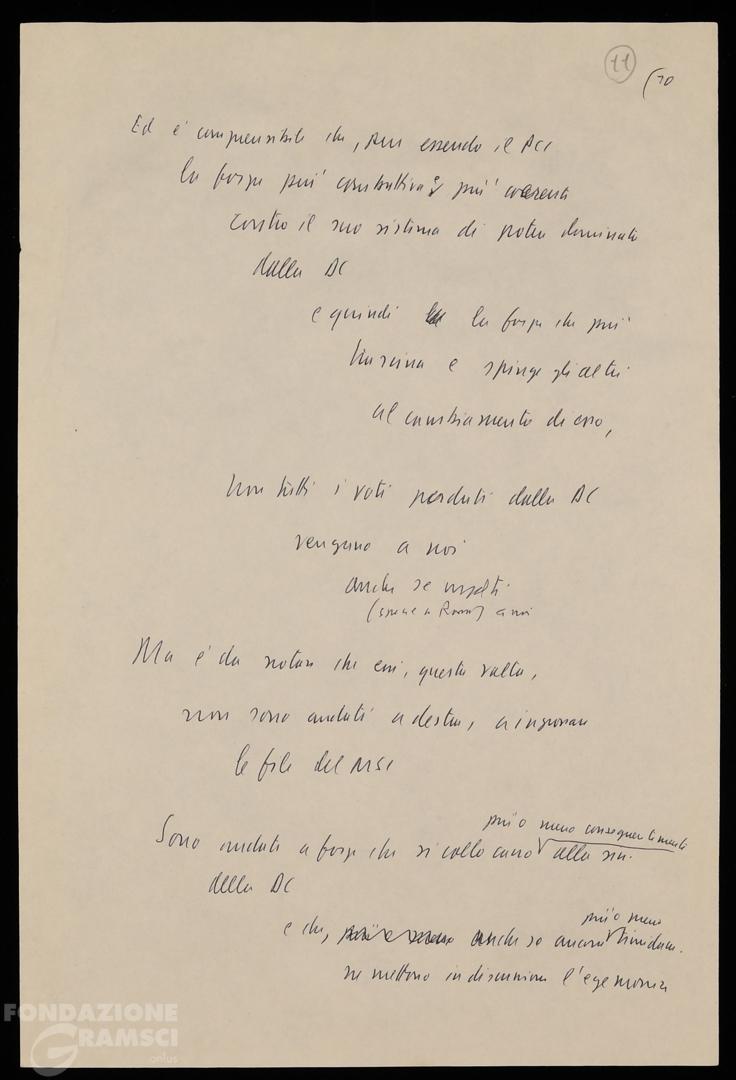 11 (10
Ed è comprensibile che, pur essendo il PCI
la forza più combattiva e più coerente
contro il suo sistema di potere dominato
dalla DC
e quindi la forza che più
trascina e spinge gli altri
al cambiamento di esso,
non tutti i voti perduti dalla DC
vengano a noi
anche se molti
(specie a Roma) a noi
Ma è da notare che essi, questa volta,
non sono andati a destra, a ingrossare
le file del MSI
più o meno conseguentemente
Sono andati a forze che si collocano alla sin.
della DC
più o meno
e che, più o meno anche se ancora timidam.
ne mettono in discussione l'egemonia
FONDAZIONE
GRAMSCI
onlus